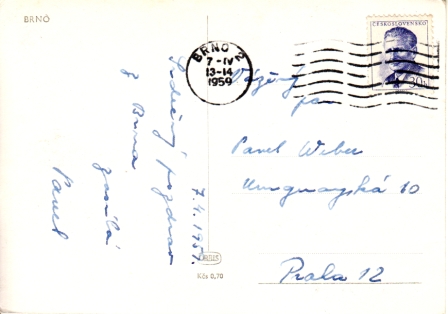 BRNO
BRNO 2
7-IV
13-14
1959
ČESKOSLOVENSKO
30h
Srdečný pozdrav
z Brna
zasílá
Pavel
7.4.1959.
ORBIS
Kčs 0,70
Vážený
pan
Pavel Weber
10
Praha 12